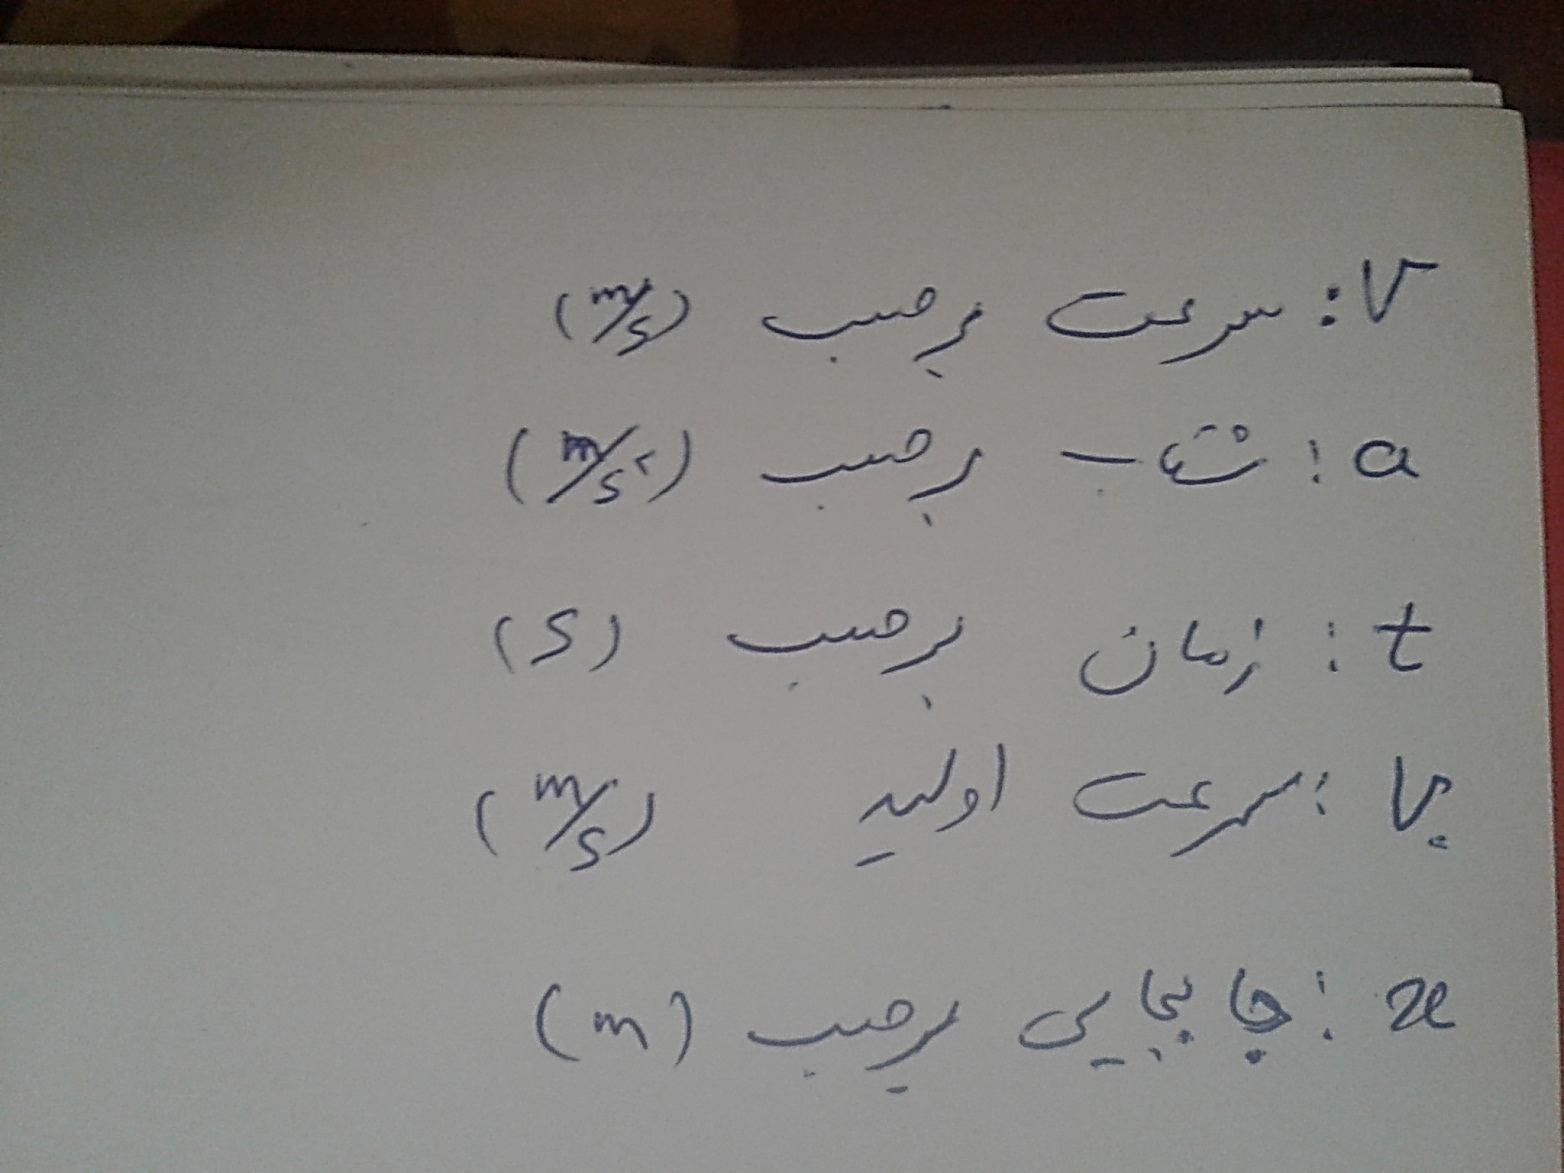 V: سرعت برحسب (m/s)
a: شتاب برحسب (m/s²)
t: زمان برحسب (s)
V₀: سرعت اولیه (m/s)
x: جابجایی برحسب (m)